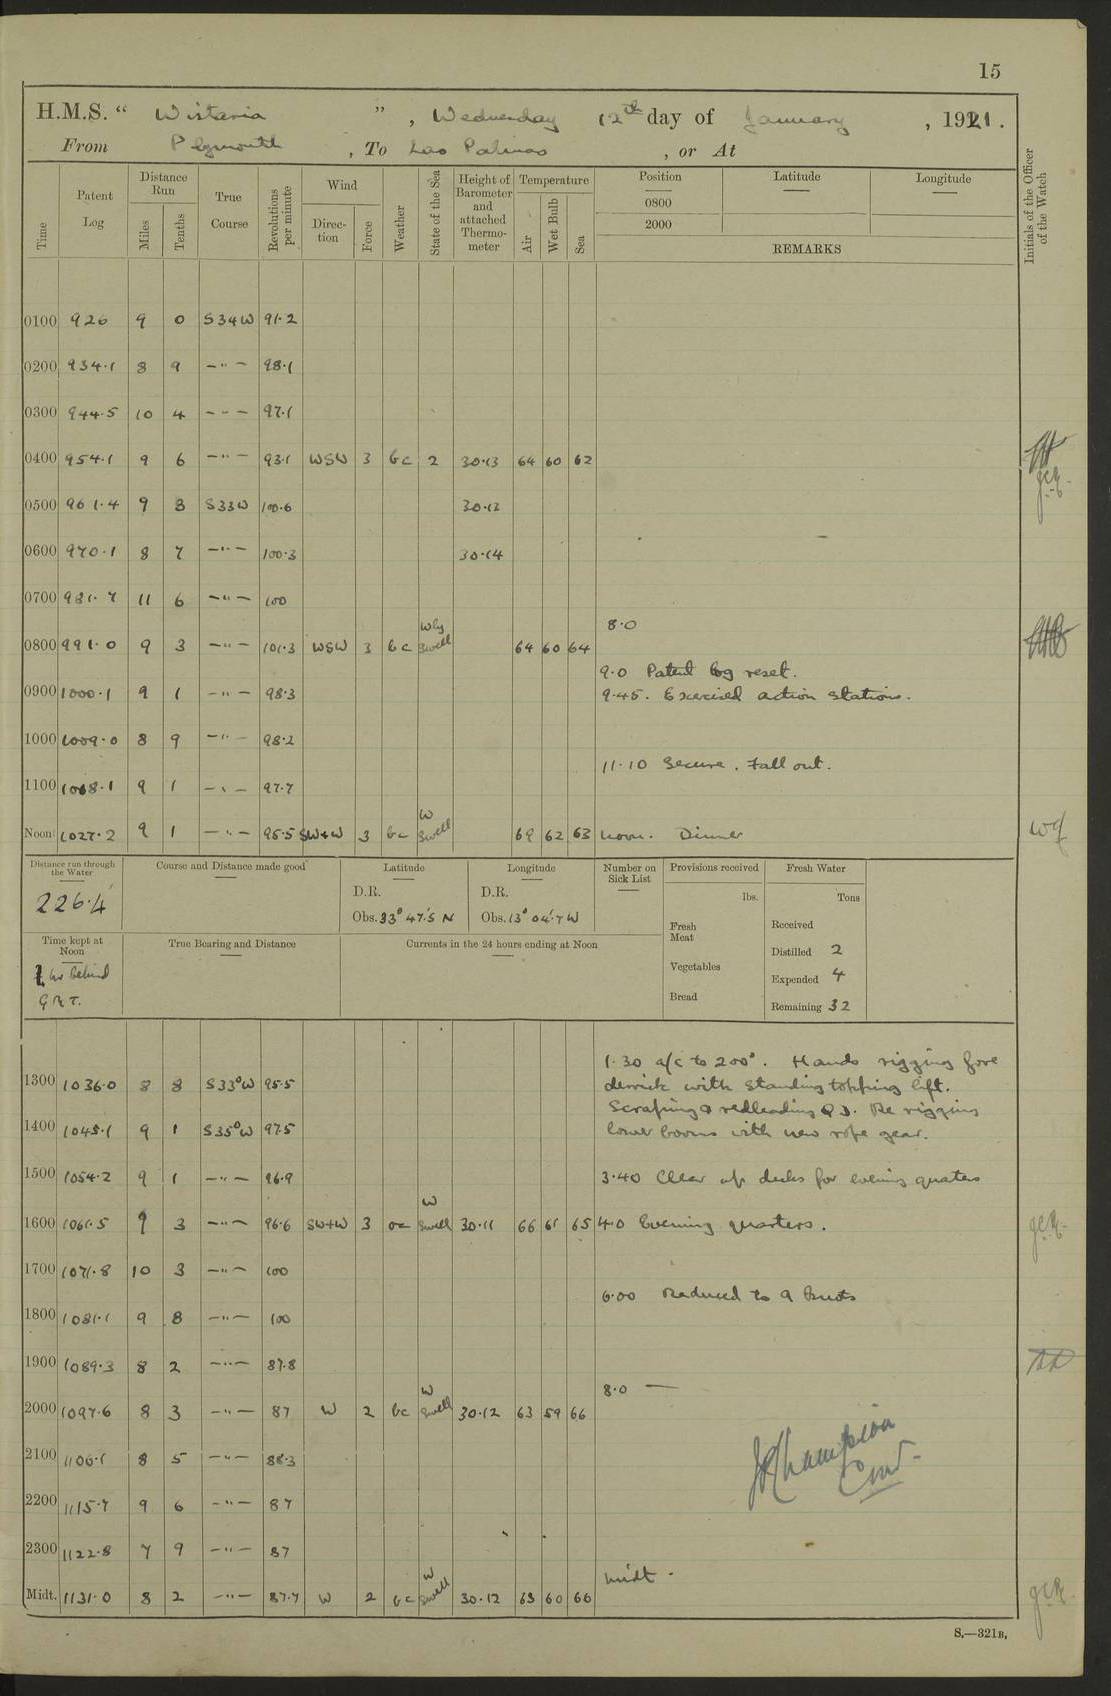 15
H.M.S. " Wistaria ", Wednesday 12th day of January, 1921.
From Plymouth, To Las Palmas, or At
Time
Patent Log
Distance Run
Miles
Tenths
True Course
Revolutions per minute
Wind
Direction
Force
Weather
State of the Sea
Height of Barometer and attached Thermometer
Temperature
Air
Wet Bulb
Sea
Position
0800
2000
Latitude
Longitude
REMARKS
Initials of the Officer of the Watch
0100 926 9 0 S34W 91.2
0200 934.1 8 9 —"— 98.1
0300 944.5 10 4 —"— 97.1
0400 954.1 9 6 —"— 93.1 WSW 3 bc 2 30.13 64 60 62
0500 961.4 9 3 S33W 100.6 30.12
0600 970.1 8 7 —"— 100.3 30.14
0700 981.7 11 6 —"— 100
8.0
0800 991.0 9 3 —"— 101.3 WSW 3 bc Wly Swell 64 60 64
9.0 Patent log reset.
0900 1000.1 9 1 —"— 98.3 9.45. Exercised action stations.
1000 1009.0 8 9 —"— 98.2
11.10 Secure. Fall out.
1100 1018.1 9 1 —"— 97.7
Noon 1027.2 9 1 —"— 95.5 SW+W 3 bc W Swell 69 62 63 Noon. Dinner
Distance run through the Water
226.4'
Course and Distance made good
Latitude
D.R.
Obs. 33° 47'.5 N
Longitude
D.R.
Obs. 13° 04'.7 W
Number on Sick List
Provisions received
lbs.
Fresh Meat
Vegetables
Bread
Fresh Water
Tons
Received
Distilled 2
Expended 4
Remaining 32
Time kept at Noon
hr behind
G.M.T.
True Bearing and Distance
Currents in the 24 hours ending at Noon
1.30 a/c to 200°. Hands rigging fore
1300 1036.0 8 8 S33°W 95.5 derrick with standing topping lift.
Scraping & redleading QD. Re rigging
1400 1045.1 9 1 S35°W 97.5 lower booms with new rope gear.
1500 1054.2 9 1 —"— 96.9 3.40 Clear up decks for evening quaters
1600 1061.5 9 3 —"— 96.6 SW+W 3 oc W Swell 30.11 66 61 65 4.0 Evening quarters. JCR
1700 1071.8 10 3 —"— 100
6.00 Reduced to 9 knots
1800 1081.1 9 8 —"— 100
1900 1089.3 8 2 —"— 87.8
8.0 —
2000 1097.6 8 3 —"— 87 W 2 bc W Swell 30.12 63 59 66
2100 1106.1 8 5 —"— 88.3
JP Champion
Cmdr.
2200 1115.7 9 6 —"— 87
2300 1122.8 7 9 —"— 87
Midt.
Midt. 1131.0 8 2 —"— 87.7 W 2 bc W Swell 30.12 63 60 66 JCR
S.—321B.